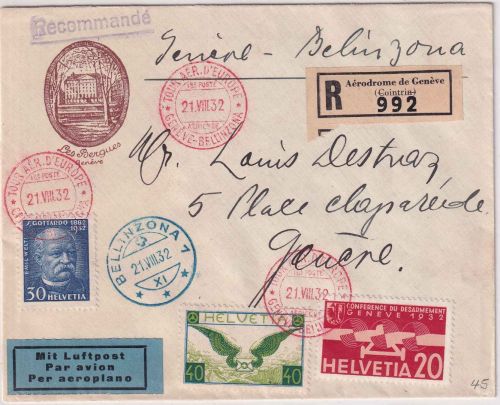 Recommandé
Genève - Bellinzona
Les Bergues
Genève
TOUR AÉR. D'EUROPE
21.VIII.32
GENÈVE-BELLINZONA
R
Aérodrome de Genève
(Cointrin)
992
Mr. Louis Destraz
5 Place claparède
Genève
TOUR AÉR. D'EUROPE
21.VIII.32
GOTTARDO 1882
1932
30 HELVETIA
BELLINZONA 1
21.VIII.32
XI
TOUR AÉR. D'EUROPE
21.VIII.32
HELVETIA
40 40
CONFERENCE DU DESARMEMENT
GENÈVE 1932
HELVETIA 20
Mit Luftpost
Par avion
Per aeroplano
45